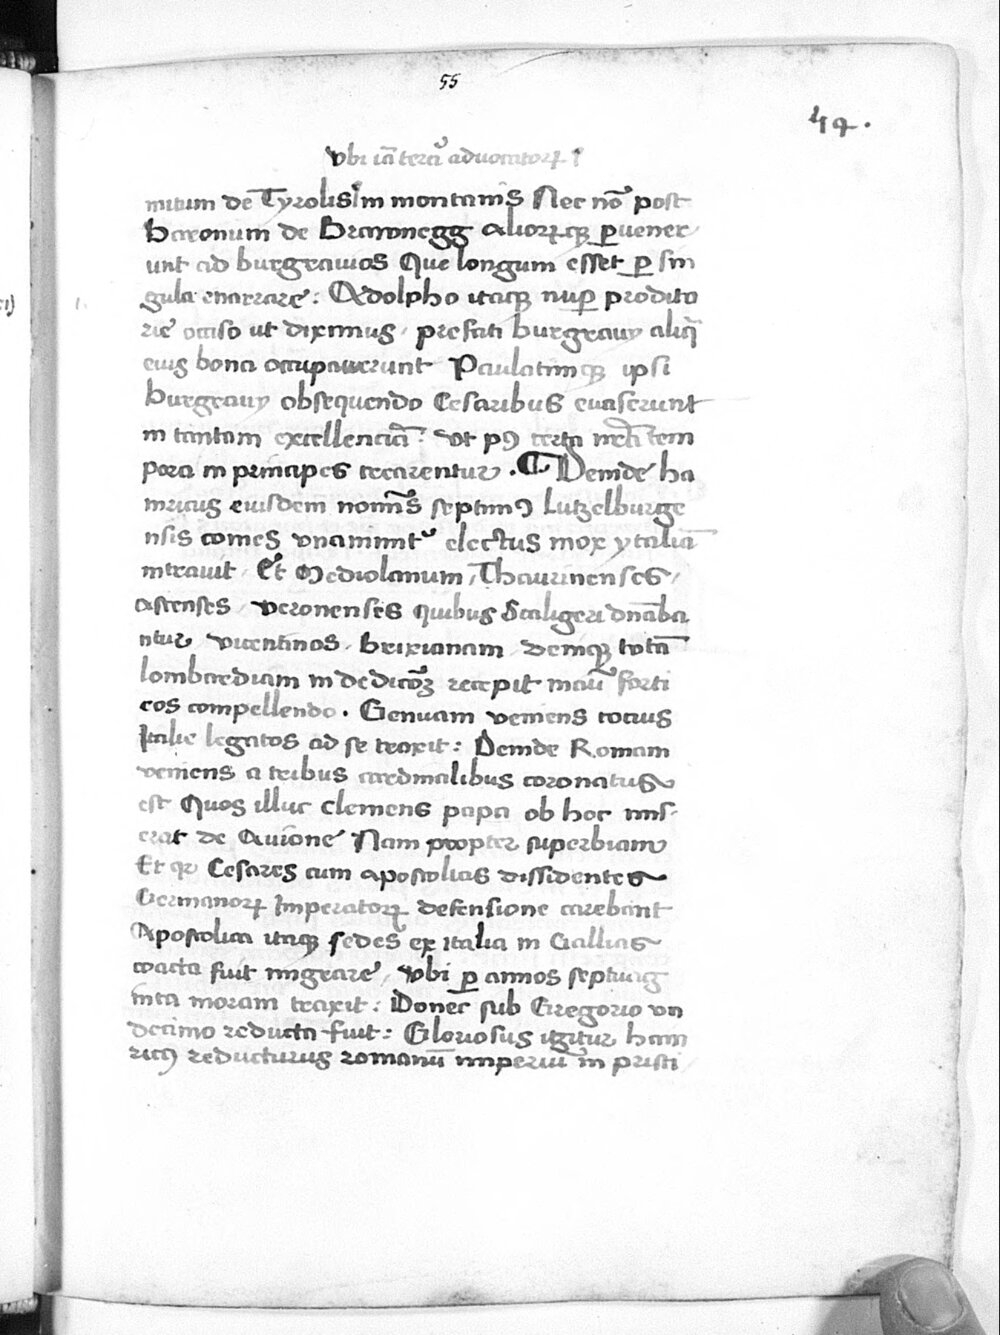 55
44.
vbi iā terrā aduocatorꝝ
mitum de Tyrolis in montanis Nec nō post
Baronum de Brawnegg aliorꝝqꝫ ꝑuener
unt ad burgrauios Que longum esset ꝑ sin
gula enarrare: Adolpho itaqꝫ nuꝑ prodito
rie occiso ut diximus, prefati burgrauy aliq̄
eius bona occupauerunt Paulatimqꝫ ipsi
Burgrauy obsequendo Cesaribus euaserunt
in tantam excellenciā: vt tem
pora in principes crearentur. ¶ Deinde ha
inricus eiusdem nominis septimꝰ Lutzelburge
nsis comes vnanimit᷑ electus mox ytaliā
intrauit, Et Mediolanum, Thaurinenses,
astenses, veronenses quibus Scaligeri dnāba
ntur vicentinos, brixianam, deniqꝫ totā
lombardiam in dedicōꝫ recepit manū forti
eos compellendo. Genuam veniens tocius
Italie legatos ad se traxit: Deinde Romam
veniens a tribus cardinalibus coronatus
est Quos illuc clemens papa ob hoc mis-
erat de Auione Nam propter superbiam
Et qꝛ Cesares cum apostolicis dissidentes
Germanorꝝ Imperatorꝝ defensione carebant
Apostolica itaqꝫ sedes ex italia in Gallias
coacta fuit migrare, vbi ꝑ annos septuag
inta moram traxit: Donec sub Gregorio vn
decimo reducta fuit: Gloriosus igitur hain
ricꝰ reducturus romanū imperiū in pristi